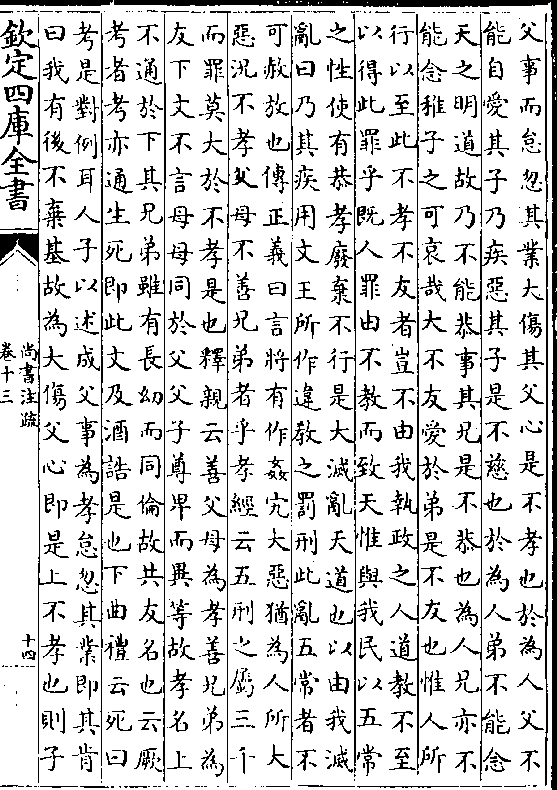 父事而怠忽其業大傷其父心是不孝也於為人父不
能自愛其子乃疾惡其子是不慈也於為人弟不能念
天之明道故乃不能恭事其兄是不恭也為人兄亦不
能念稚子之可哀哉大不友愛於弟是不友也惟人所
行以至此不孝不友者豈不由我執政之人道教不至
以得此罪乎既人罪由不教而致天惟與我民以五常
之性使有恭孝廢棄不行是大滅亂天道也以由我滅
亂曰乃其疾用文王所作違教之罰刑此亂五常者不
可赦放也傳正義曰言將有作姦宄大惡猶為人所大
惡況不孝父母不善兄弟者乎孝經云五刑之屬三千
而罪莫大於不孝是也釋親云善父母為孝善兄弟為
友下文不言母母同於父父子尊卑而異等故孝名上
不通於下其兄弟雖有長幼而同倫故共友名也云厥
考者考亦通生死即此文及酒誥是也下曲禮云死曰
考是對例耳人子以述成父事為孝怠忽其業即其肯
曰我有後不棄基故為大傷父心即是上不孝也則子
欽定四庫全書
尚書注疏
卷十三
十四